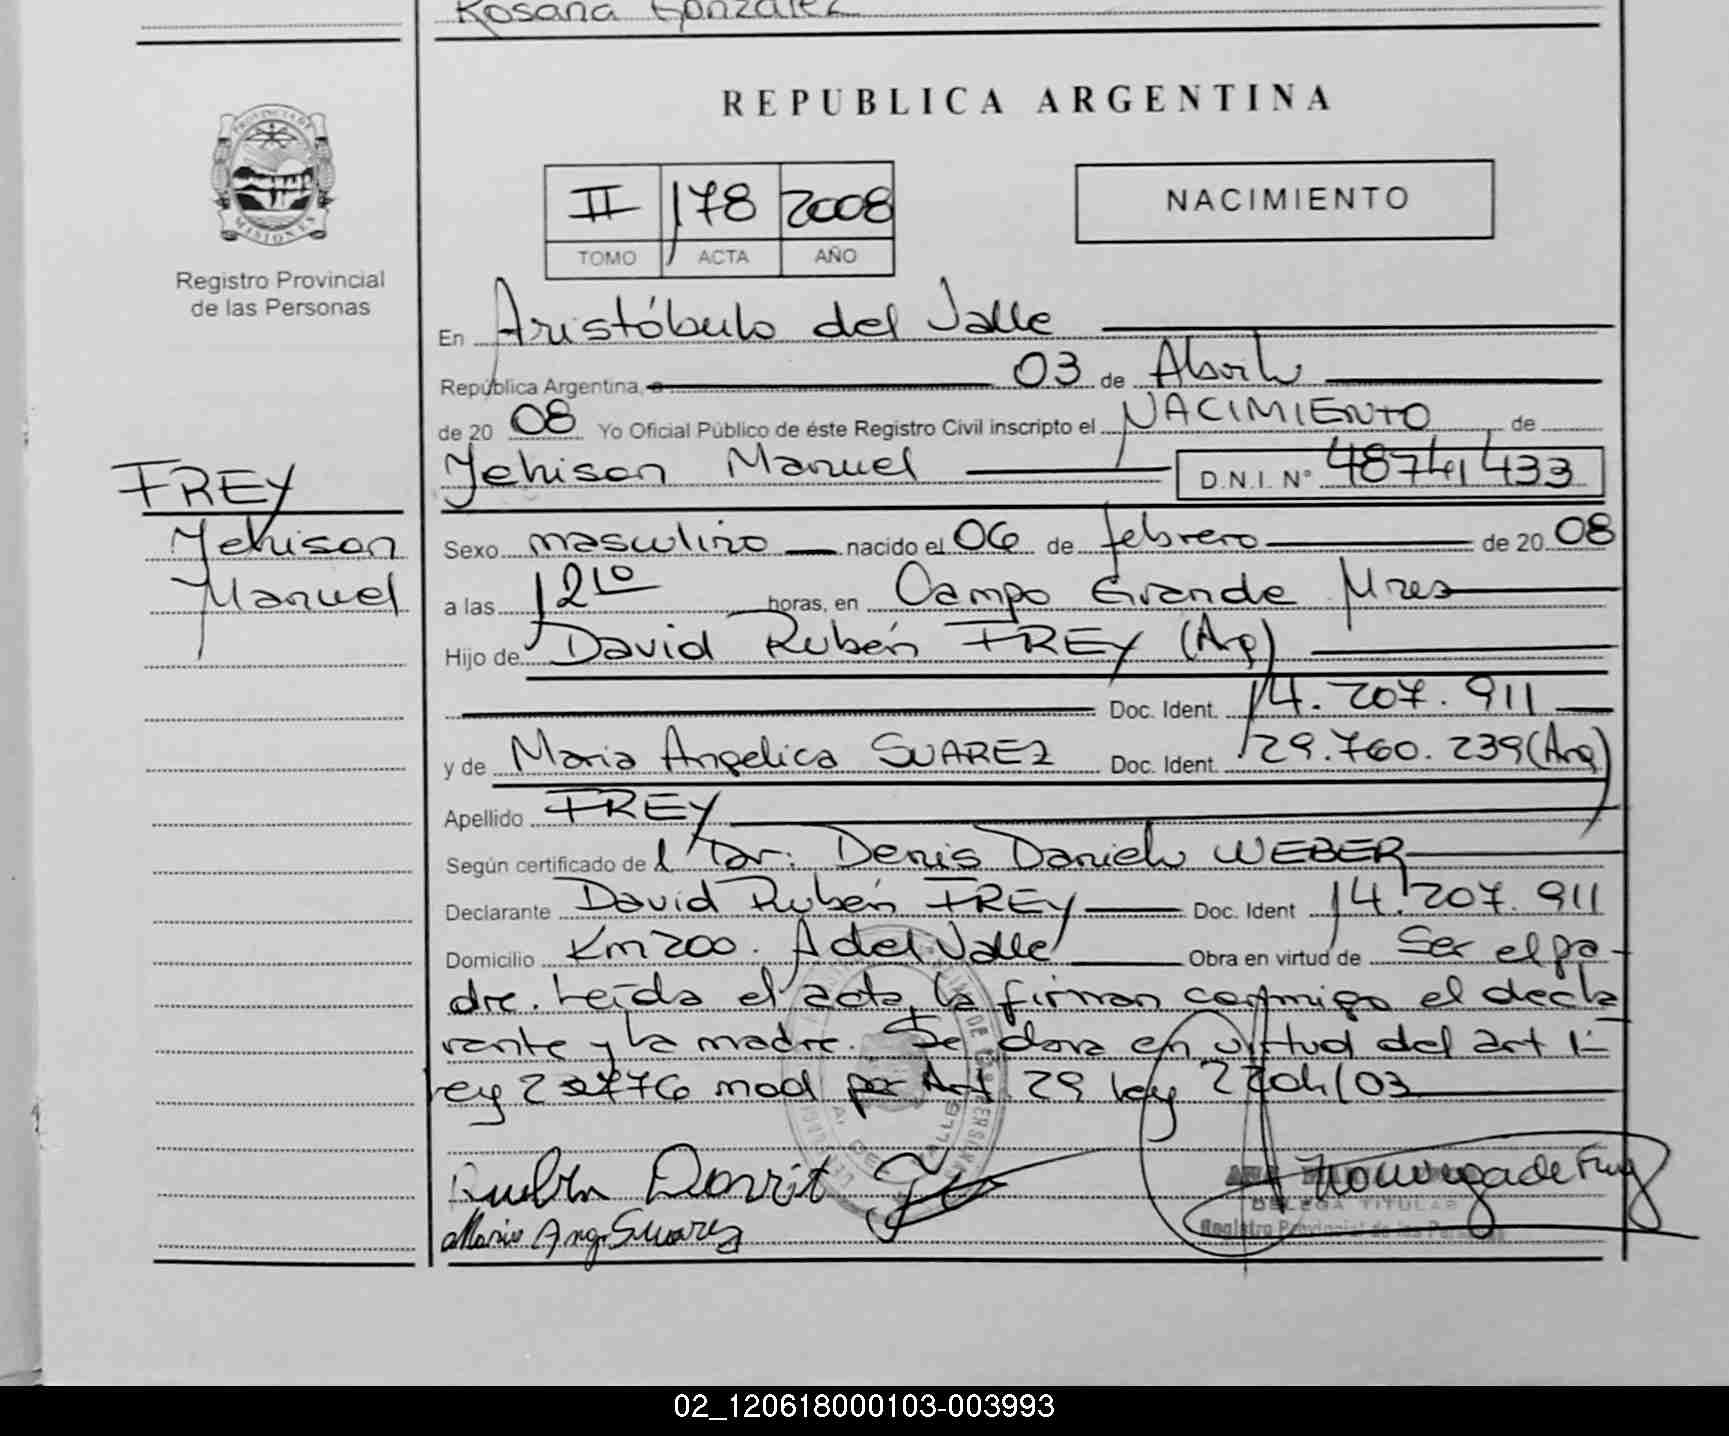 Rosana González
REPUBLICA ARGENTINA
PROVINCIA DE MISIONES
Registro Provincial
de las Personas
II 178 2008
TOMO ACTA AÑO
NACIMIENTO
En Aristóbulo del Valle
República Argentina, a 03 de Abril
de 20 08 Yo Oficial Público de éste Registro Civil inscripto el NACIMIENTO de
Yehison Manuel D.N.I. N° 48741433
FREY
Yehison
Manuel
Sexo masculino nacido el 06 de febrero de 20 08
a las 12 10 horas, en Campo Grande Mnes
Hijo de David Rubén FREY (Arg)
Doc. Ident. 14.207.911
y de Maria Angelica SUAREZ Doc. Ident. 29.760.239 (Arg)
Apellido FREY
Según certificado de l Dr. Denis Daniel WEBER
Declarante David Rubén FREY Doc. Ident 14.207.911
Domicilio Km 200. A del Valle Obra en virtud de Ser el pa-
dre. Leída el acta, la firman conmigo el decla
rante y la madre. Se labra en virtud del art 1
ley mod por Art 29 ley
Rubén David
Maria Ang. Suarez
DELEGA TITULAR
Registro Provincial de las Personas
02_120618000103-003993